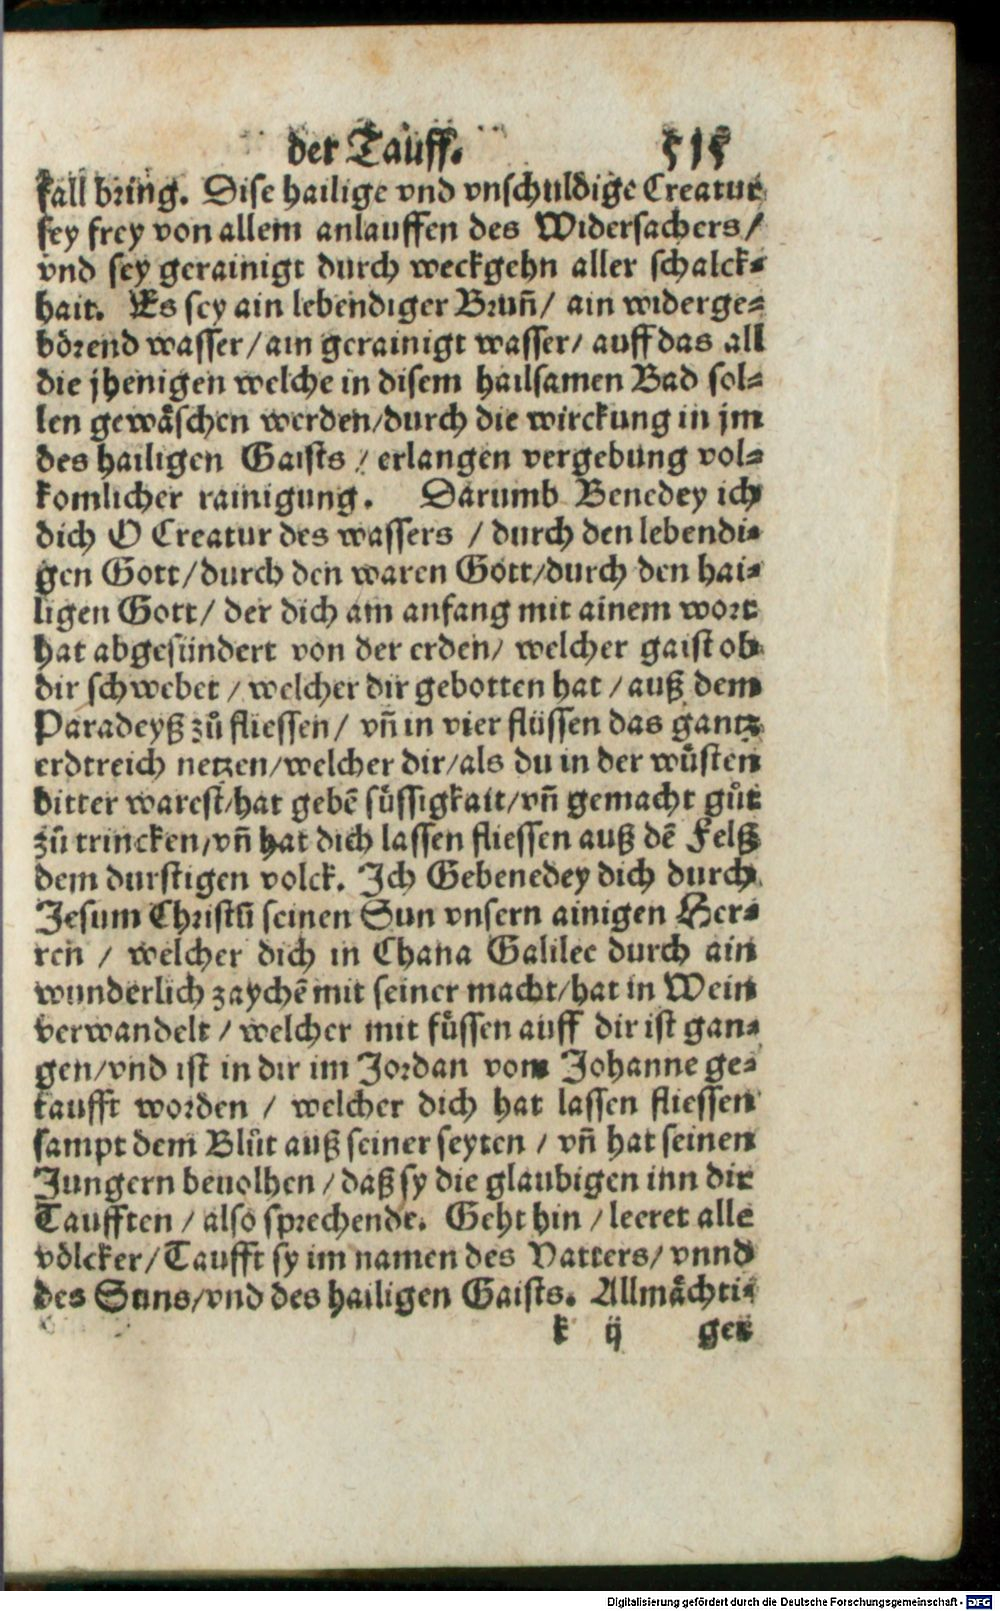 der Tauff. 515
fall bring. Dise hailige vnd vnschuldige Creatur
sey frey von allem anlauffen des Widersachers/
vnd sey gerainigt durch weckgehn aller schalck⸗
hait. Es sey ain lebendiger Brun̄/ ain widerge⸗
börend wasser/ ain gerainigt wasser/ auff das all
die jhenigen welche in disem hailsamen Bad sol⸗
len gewäschen werden/durch die wirckung in jm
des hailigen Gaists / erlangen vergebung vol⸗
komlicher rainigung. Darumb Benedey ich
dich O Creatur des wassers / durch den lebendi⸗
gen Gott/durch den waren Gott/durch den hai⸗
ligen Gott/ der dich am anfang mit ainem wort
hat abgesündert von der erden/ welcher gaist ob
dir schwebet / welcher dir gebotten hat / auß dem
Paradeyß zů fliessen/ vn̄ in vier flüssen das gantz
erdtreich netzen/welcher dir/als du in der wüsten
bitter warest/hat gebē süssigkait/vn̄ gemacht gůt
zů trincken/vn̄ hat dich lassen fliessen auß dē Felß
dem durstigen volck. Ich Gebenedey dich durch
Jesum Christū seinen Sun vnsern ainigen Her⸗
ren / welcher dich in Chana Galilee durch ain
wunderlich zaychē mit seiner macht/hat in Wein
verwandelt / welcher mit füssen auff dir ist gan⸗
gen/vnd ist in dir im Jordan vom Johanne ge⸗
taufft worden / welcher dich hat lassen fliessen
sampt dem Blůt auß seiner seyten / vn̄ hat seinen
Jungern beuolhen / daß sy die glaubigen inn dir
Taufften / also sprechende. Geht hin / leeret alle
völcker/ Taufft sy im namen des Vatters/ vnnd
des Suns/vnd des hailigen Gaists. Allmächti⸗
k ij ger
Digitalisierung gefördert durch die Deutsche Forschungsgemeinschaft - DFG